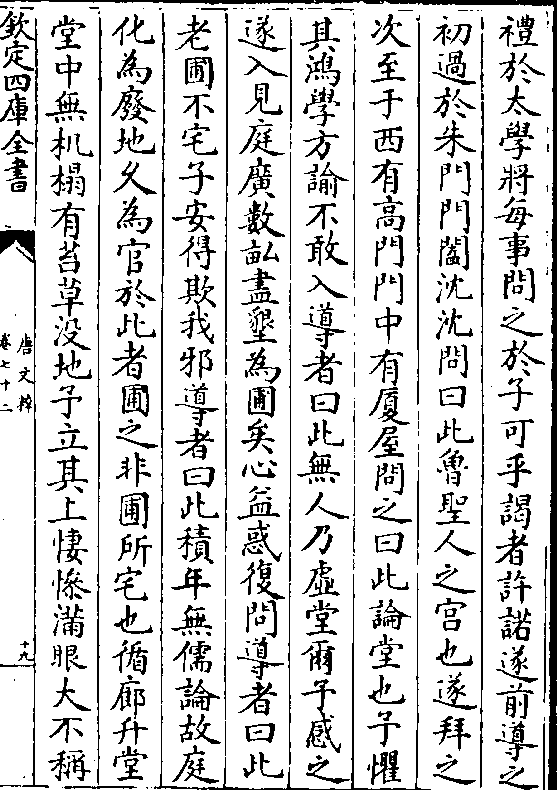 禮於太學將每事問之於子可乎謁者許諾遂前導之
初過於朱門門闔沈沈問曰此魯聖人之宮也遂拜之
次至于西有高門門中有厦屋問之曰此論堂也予懼
其鴻學方論不敢入導者曰此無人乃虛堂爾予惑之
遂入見庭廣數畝盡墾為圃矣心益惑復問導者曰此
老圃不宅子安得欺我邪導者曰此積年無儒論故庭
化為廢地久為官於此者圃之非圃所宅也循廊升堂
堂中無机榻有苔草没地予立其上悽慘滿眼大不稱
欽定四庫全書
唐文粹
卷七十二
十九